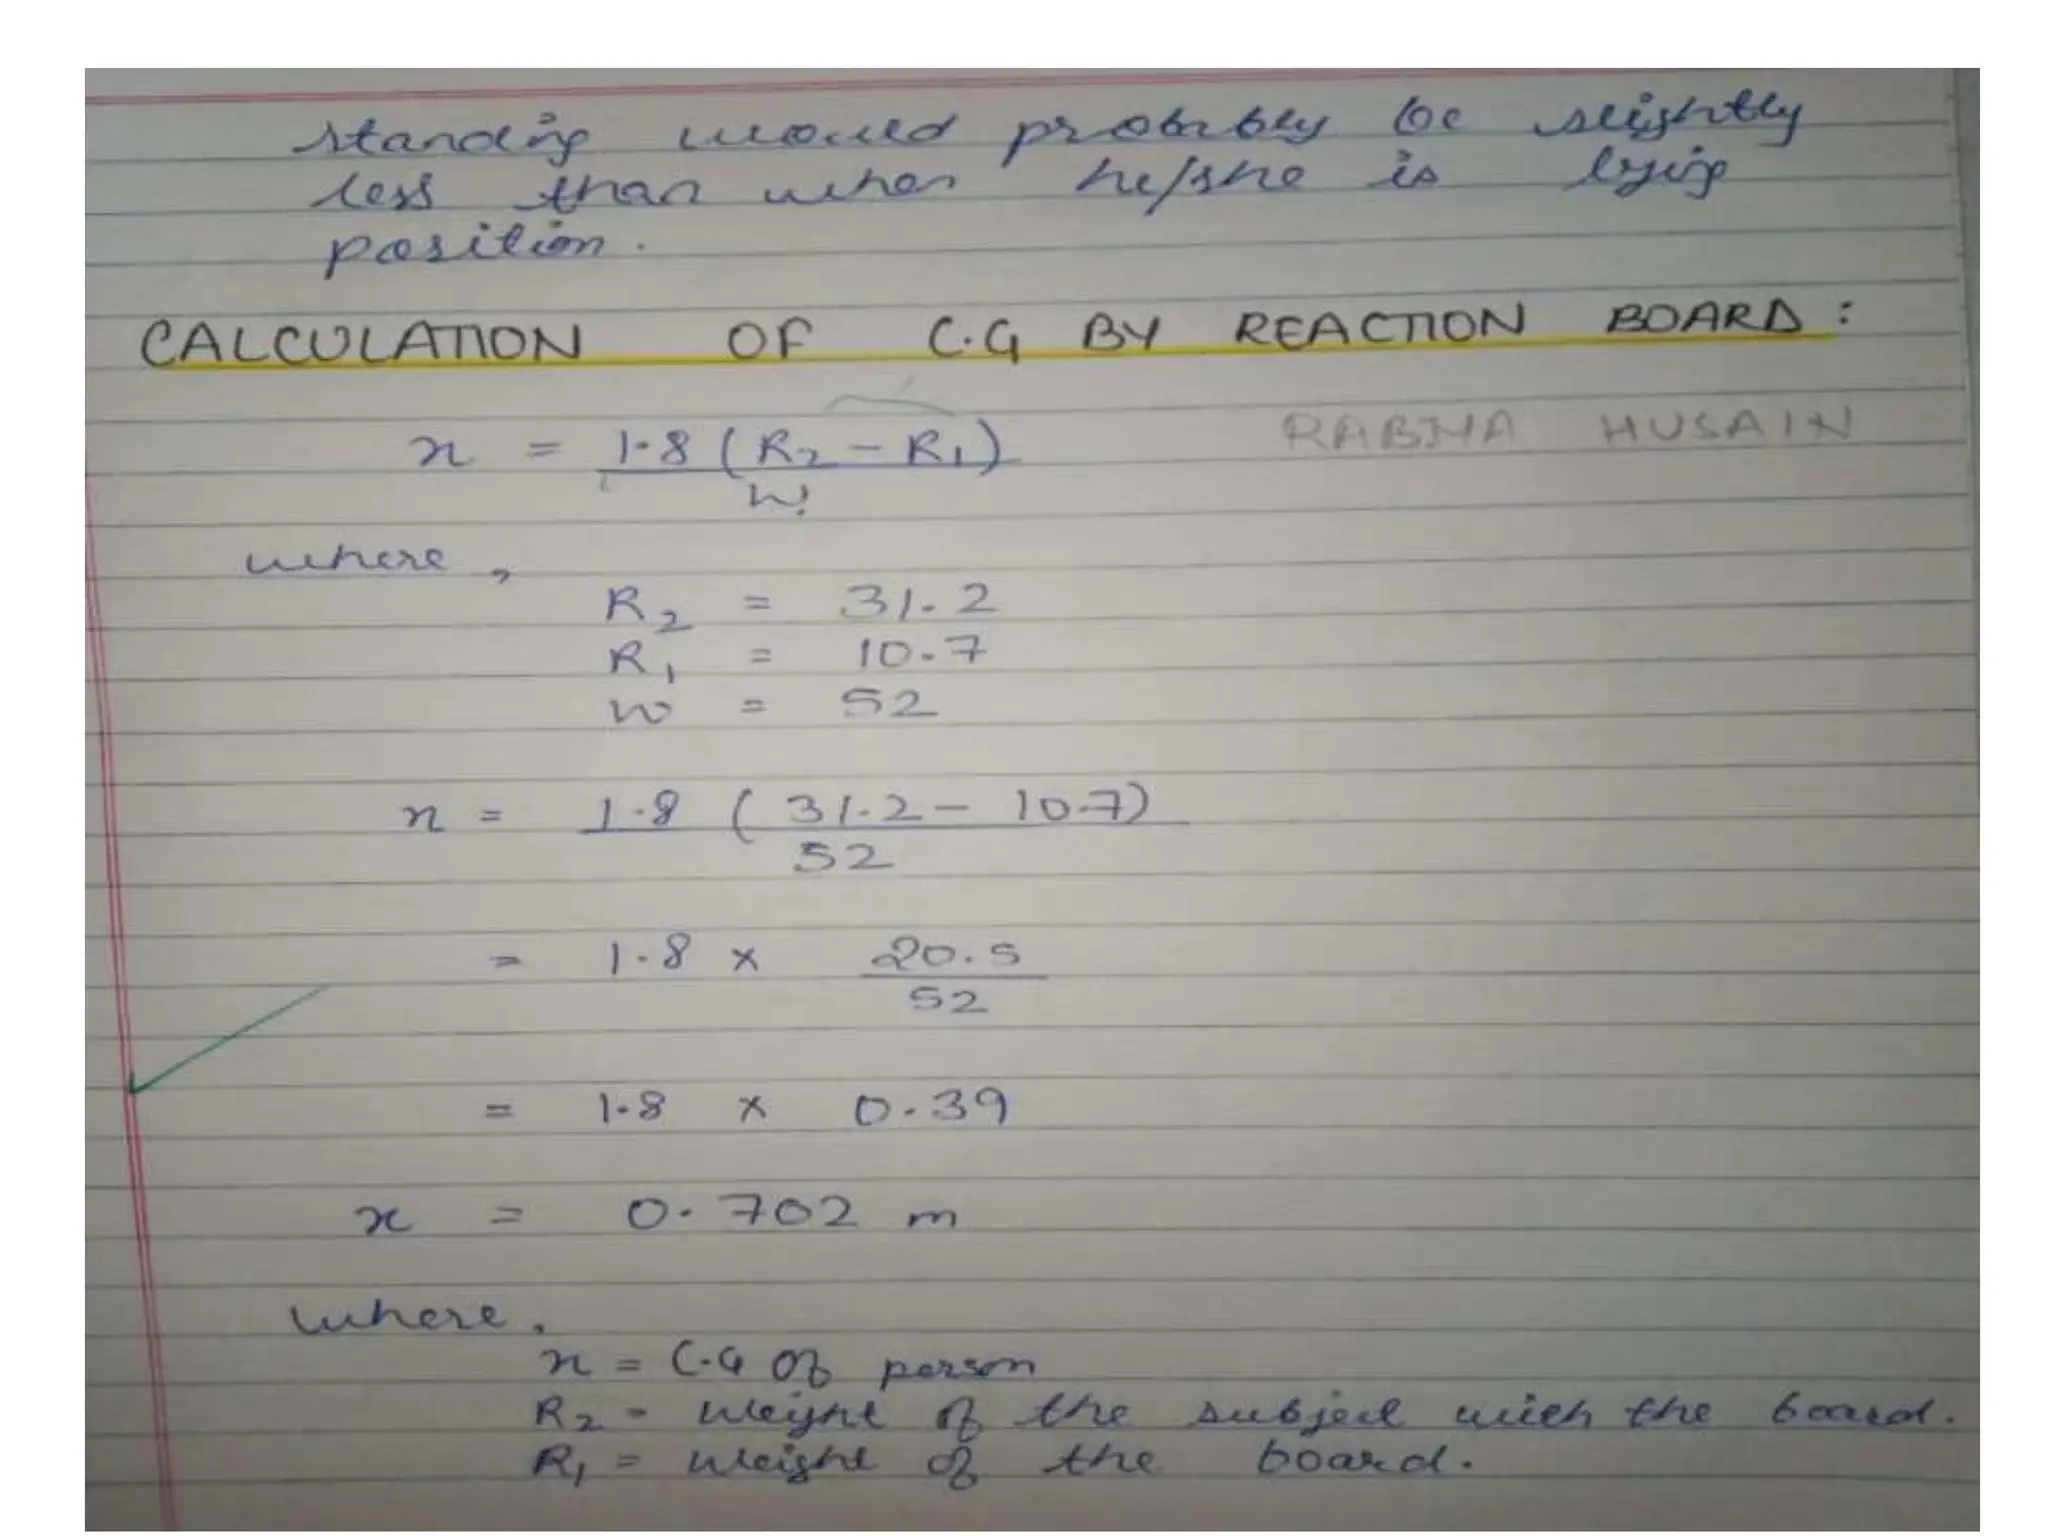 standing would probably be slightly
less than when he/she is lying
position.
CALCULATION OF C.G BY REACTION BOARD:
x = 1.8 (R₂ - R₁)
W
RABIYA HUSAIN
where,
R₂ = 31.2
R₁ = 10.7
W = 52
x = 1.8 (31.2 - 10.7)
52
= 1.8 × 20.5
52
= 1.8 × 0.39
x = 0.702 m
where,
x = C.G of person
R₂ = weight of the subject with the board.
R₁ = weight of the board.